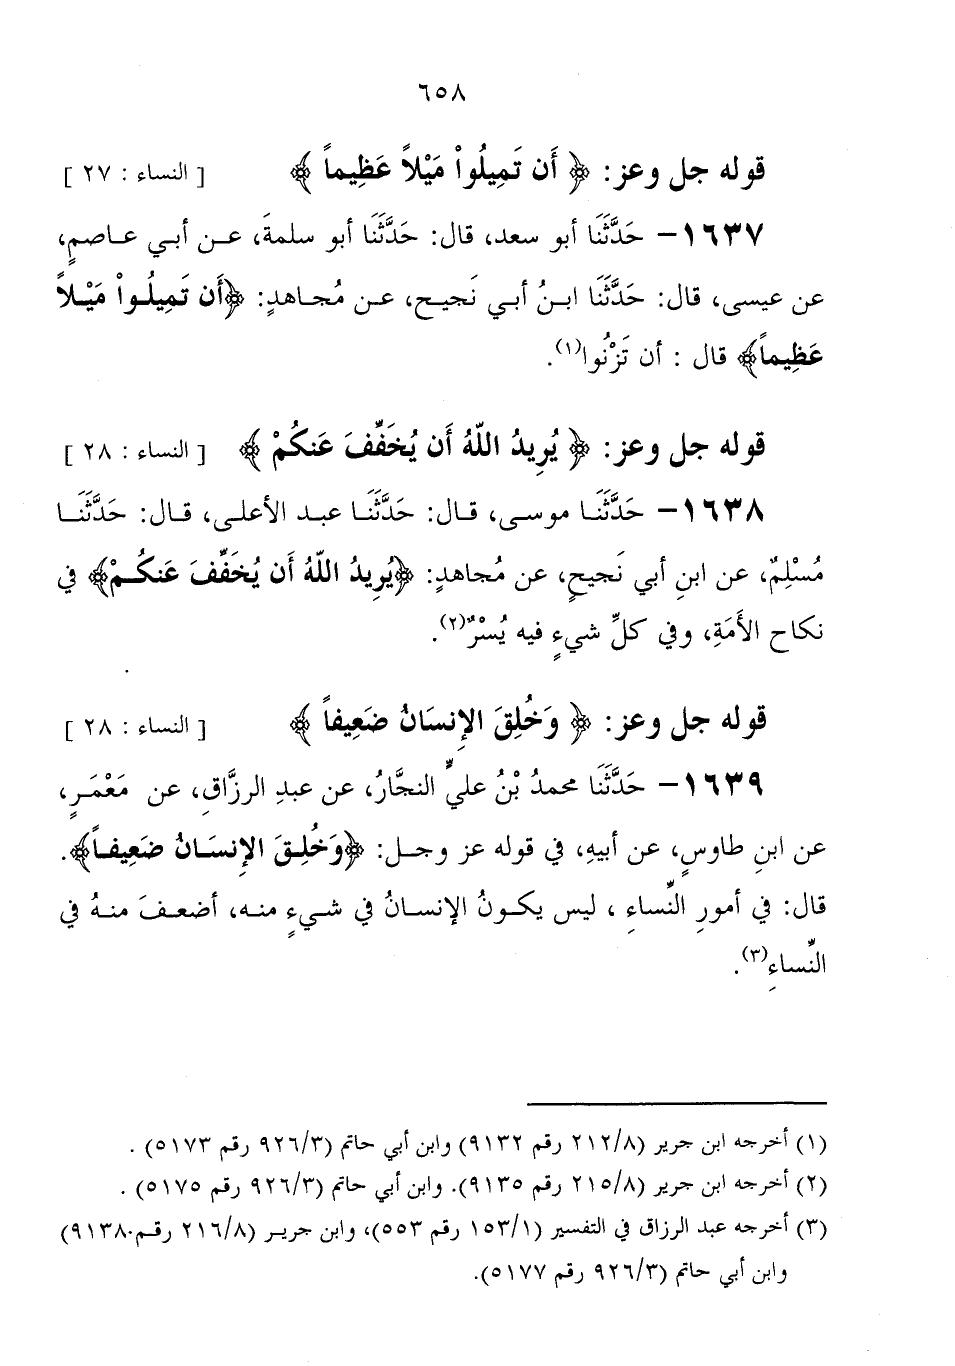 ٦٥٨
قوله جل وعز: ﴿ أَن تَمِيلُواْ مَيْلاً عَظِيماً ﴾ [ النساء : ٢٧ ]
١٦٣٧– حَدَّثَنَا أبو سعد، قال: حَدَّثَنَا أبو سلمةَ، عـن أبـي عـاصمٍ،
عن عيسى، قال: حَدَّثَنَا ابـنُ أبـي نَجيـح، عـن مُجـاهدٍ: ﴿أَن تَمِيلُـواْ مَيْـلاً
عَظِيماً﴾ قال : أن تَزْنُوا(١).
قوله جل وعز: ﴿ يُرِيدُ اللّهُ أَن يُخَفِّفَ عَنكُمْ ﴾ [ النساء : ٢٨ ]
١٦٣٨– حَدَّثَنَـا موسـى، قـال: حَدَّثَنَـا عبـد الأعلـى، قـال: حَدَّثَنَـا
مُسْلِمٌ، عن ابنِ أبي نَجيحٍ، عن مُجاهدٍ: ﴿يُرِيدُ اللّهُ أَن يُخَفِّفَ عَنكُـمْ﴾ في
نكاح الأَمَةِ، وفي كلِّ شيءٍ فيه يُسْرٌ(٢).
قوله جل وعز: ﴿ وَخُلِقَ الإِنسَانُ ضَعِيفاً ﴾ [ النساء : ٢٨ ]
١٦٣٩– حَدَّثَنَا محمدُ بْنُ عليٍّ النجَّارُ، عن عبدِ الرزَّاقِ، عن مَعْمَـرٍ،
عن ابنِ طاوسٍ، عن أبيهِ، في قوله عز وجـل: ﴿وَخُلِـقَ الإِنسَـانُ ضَعِيفـاً﴾.
قال: في أمورِ النِّساءِ ، ليس يكـونُ الإنسـانُ في شـيءٍ منـه، أضعـفَ منـهُ في
النِّساءِ(٣).
(١) أخرجه ابن جرير (٢١٢/٨ رقم ٩١٣٢) وابن أبي حاتم (٩٢٦/٣ رقم ٥١٧٣) .
(٢) أخرجه ابن جرير (٢١٥/٨ رقم ٩١٣٥). وابن أبي حاتم (٩٢٦/٣ رقم ٥١٧٥) .
(٣) أخرجه عبد الرزاق في التفسير (١٥٣/١ رقم ٥٥٣)، وابن جريـر (٢١٦/٨ رقـم٩١٣٨٠)
وابن أبي حاتم (٩٢٦/٣ رقم ٥١٧٧).